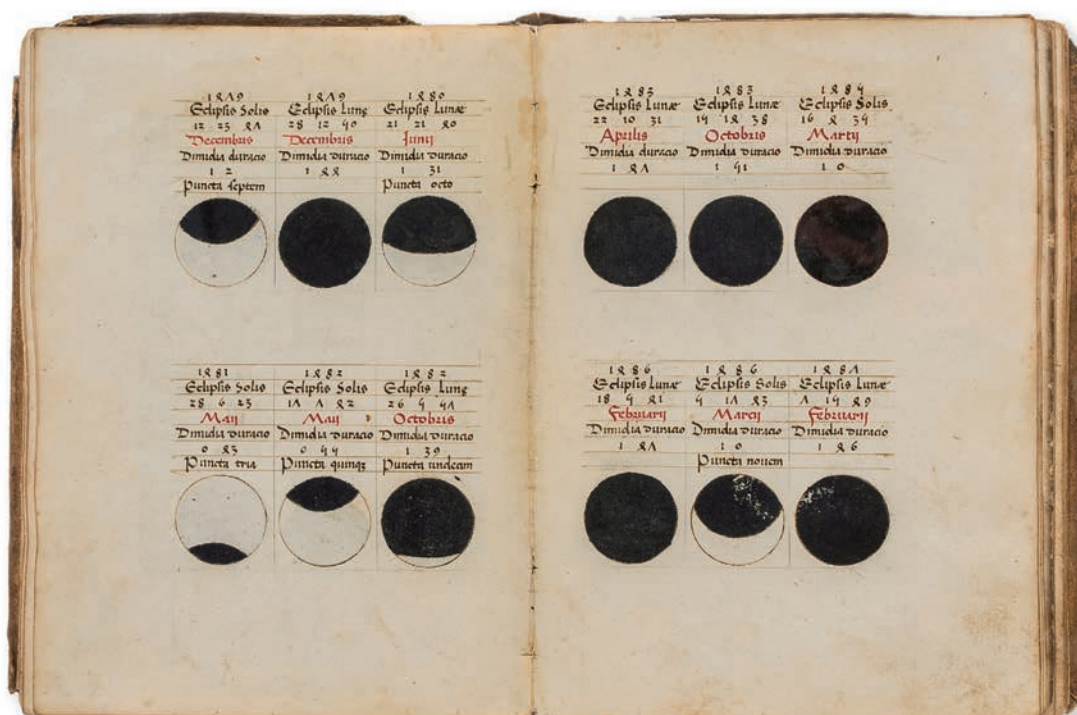 1479 1479 1480
Eclipsis Solis Eclipsis Lunę Eclipsis Lunæ
12 23 47 28 12 50 21 21 40
Decembris Decembris Junij
Dimidia duracio Dimidia duracio Dimidia duracio
1 2 1 44 1 31
Puncta septem Puncta octo
1481 1482 1482
Eclipsis Solis Eclipsis Solis Eclipsis Lunę
28 6 23 17 7 42 26 5 57
Maij Maij Octobris
Dimidia duracio Dimidia duracio Dimidia duracio
0 43 0 55 1 39
Puncta tria Puncta quinqꝫ Puncta undecim
1483 1483 1485
Eclipsis Lunæ Eclipsis Lunæ Eclipsis Solis
22 10 31 15 14 38 16 4 35
Aprilis Octobris Martij
Dimidia duracio Dimidia duracio Dimidia duracio
1 47 1 51 1 0
1486 1486 1487
Eclipsis Lunæ Eclipsis Solis Eclipsis Lunæ
18 5 41 5 17 43 7 15 49
Februarij Marcij Februarij
Dimidia duracio Dimidia duracio Dimidia duracio
1 47 1 0 1 46
Puncta nouem